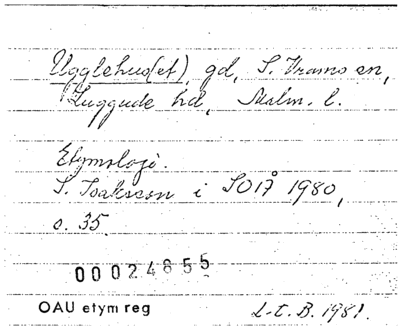 Ugglehus(et), gd, S. Vram sn,
Luggude hd, Malm. l.
Etymologi.
S. Isaksson i SOÅ 1980,
s. 35.
00024855
OAU etym reg
L-E. B. 1981.